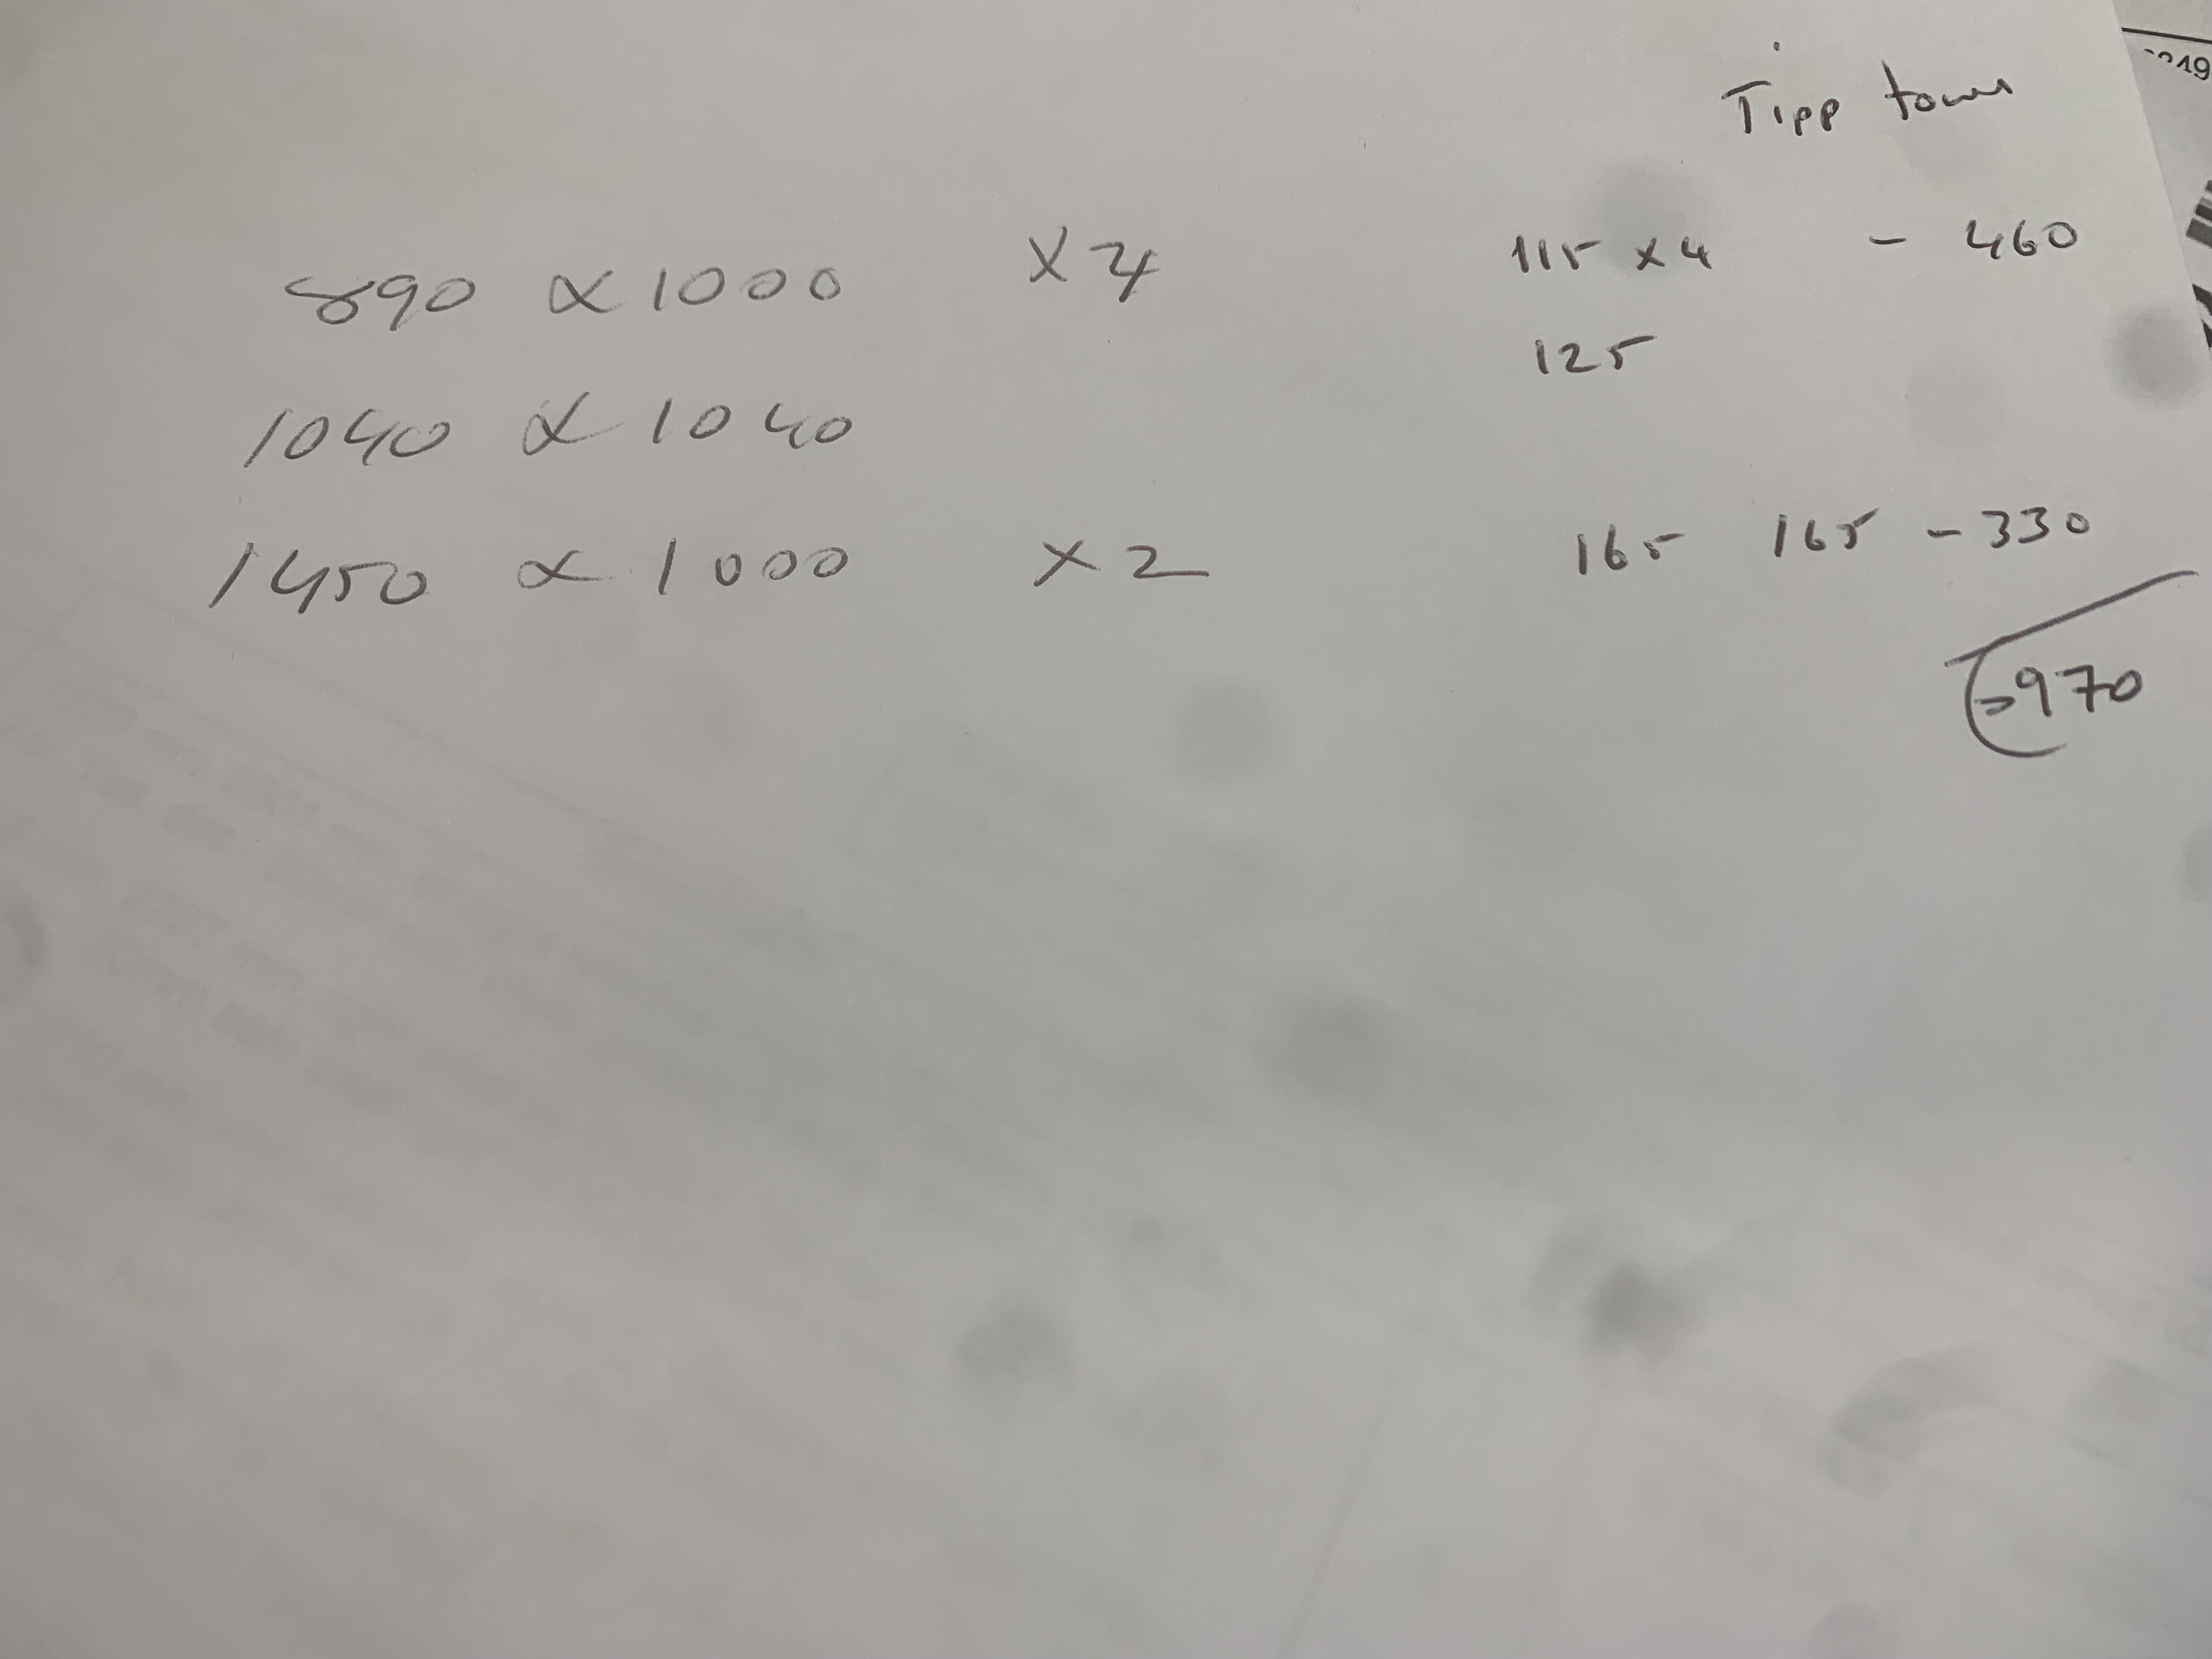 Tipp town
890 x 1000 x 4 115 x 4 - 460
125
1040 x 1040
1450 x 1000 x 2 165 165 - 330
970